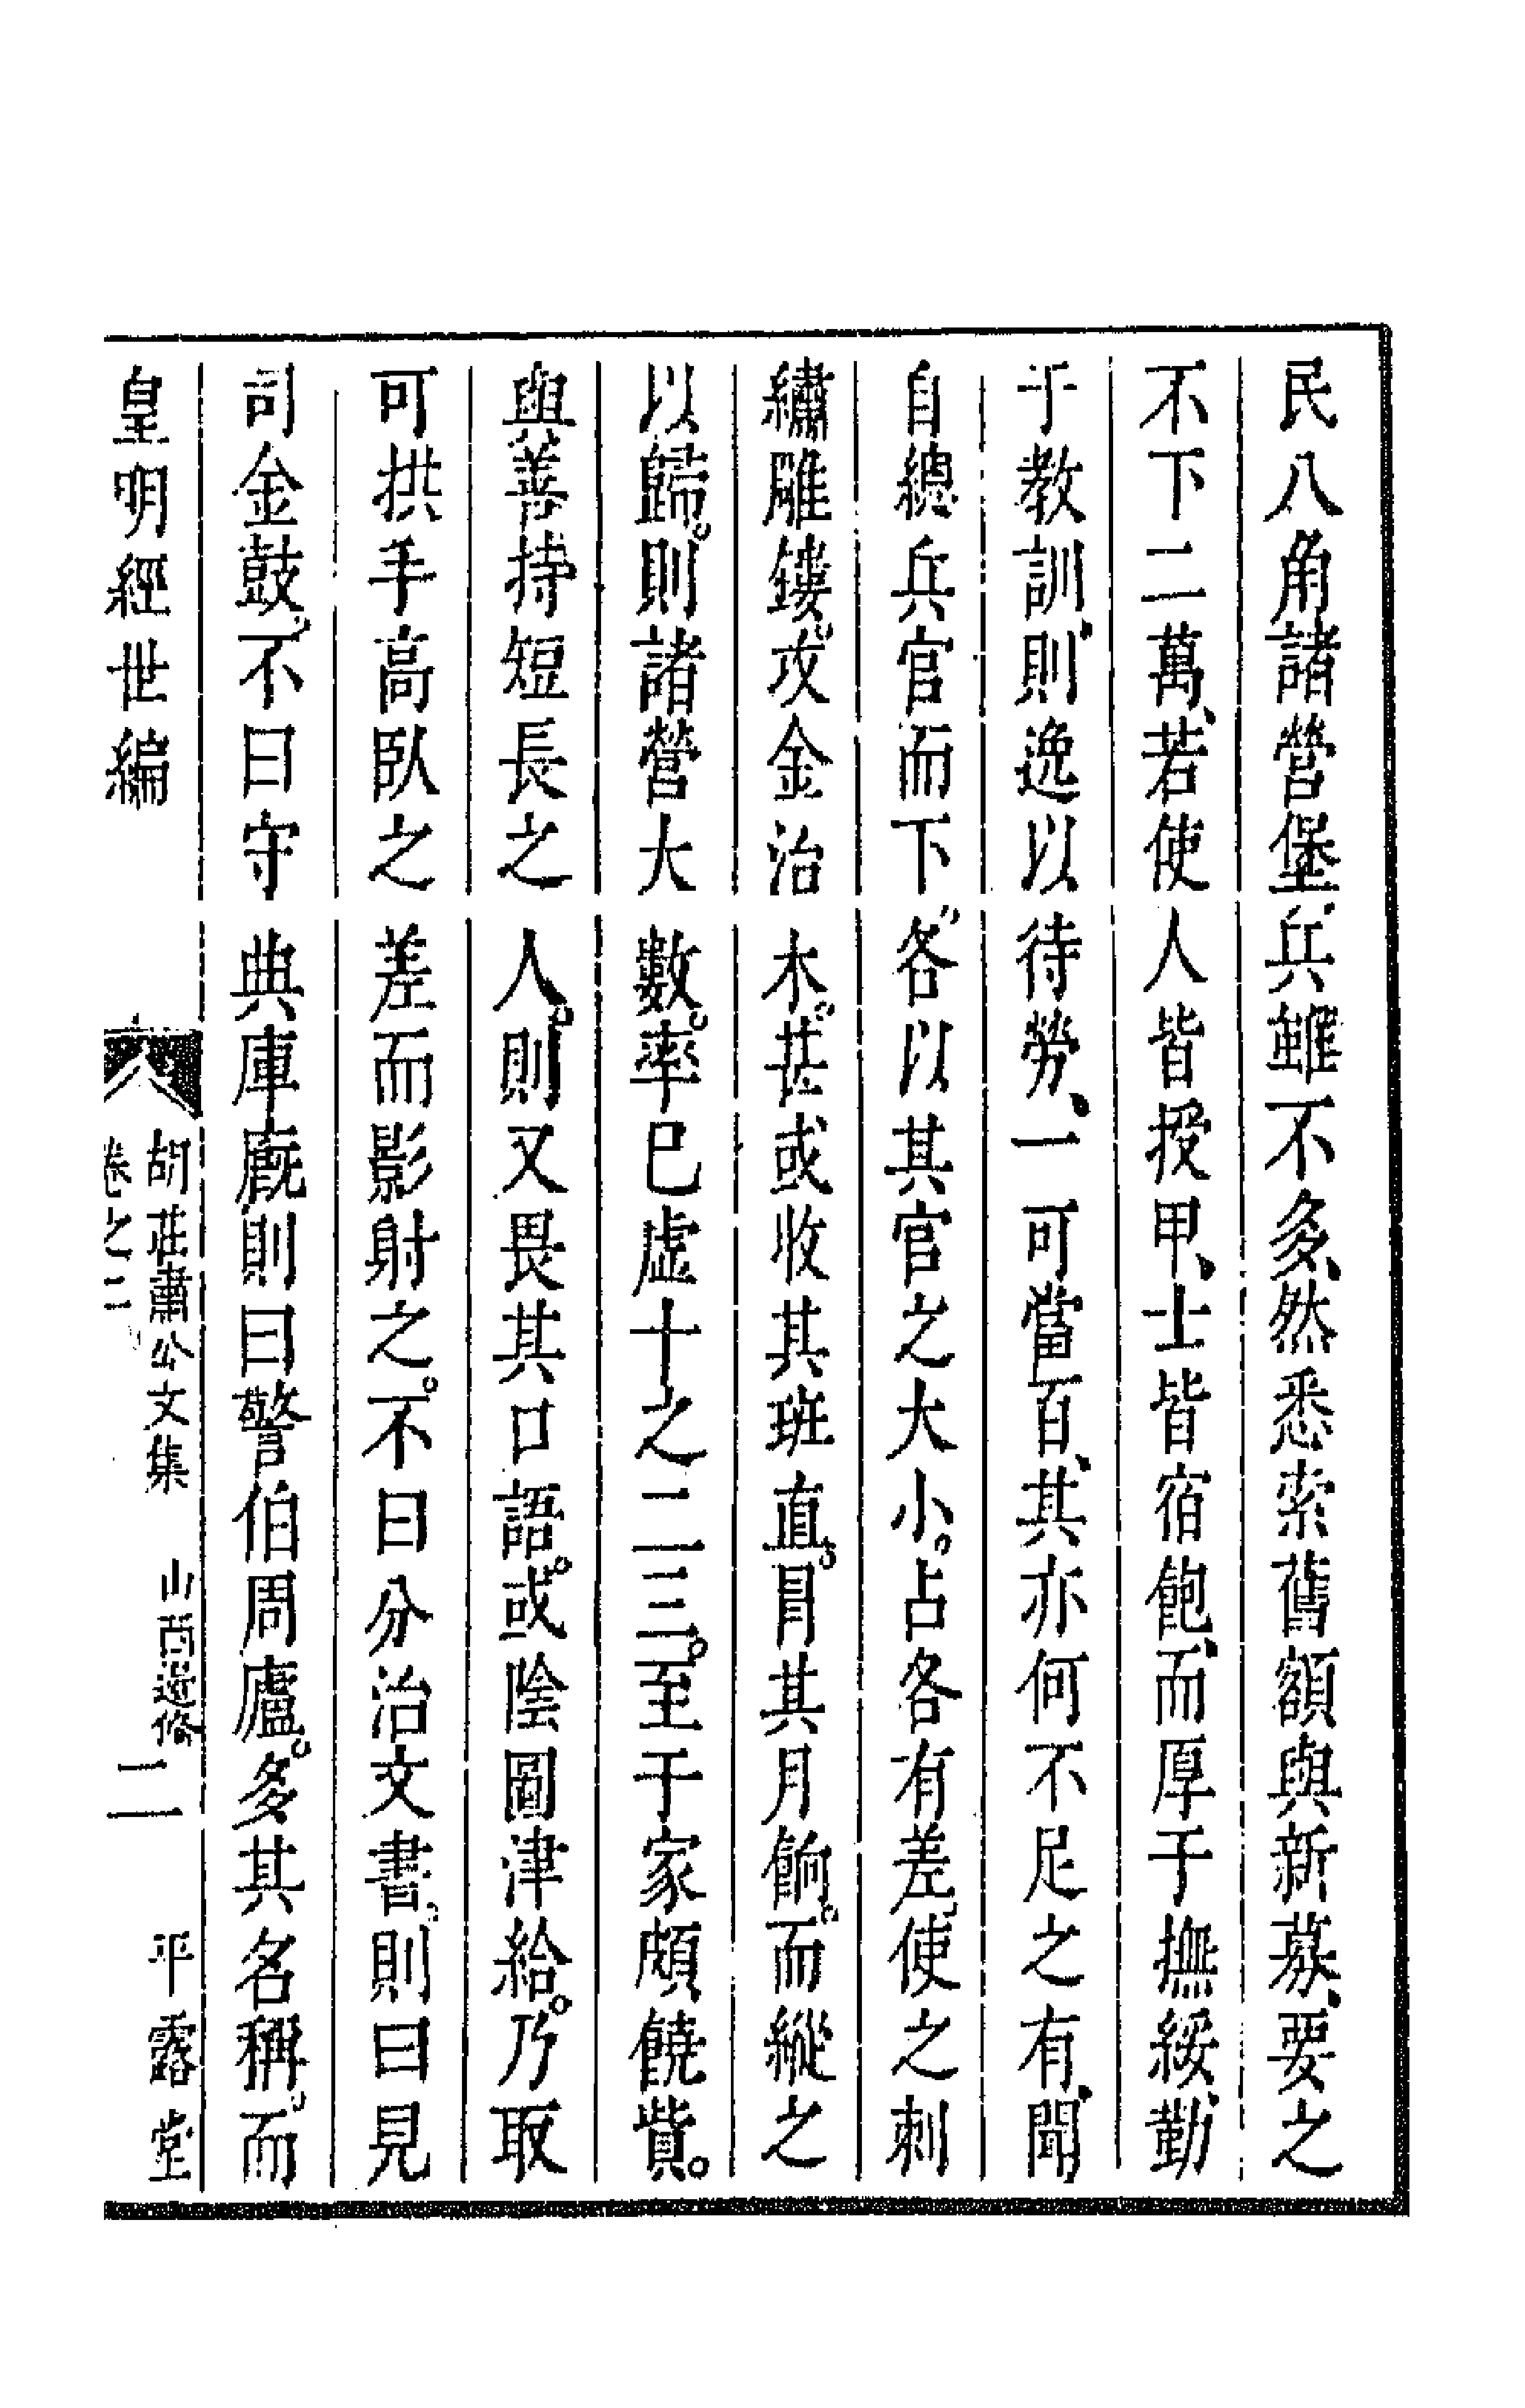 民八角諸營堡兵雖不多然悉索舊額與新募要之
不下二萬若使人皆授甲士皆宿飽而厚于撫綏勤
于教訓則逸以待勞一可當百其亦何不足之有聞
自總兵官而下各以其官之大小占各有差使之刺
繡雕鏤攻金治木甚或收其班直冒其月餉而縱之
以歸則諸營大數率已虛十之二三至于家頗饒貲
與善持短長之人則又畏其口語或陰圖津給乃取
可拱手高臥之差而影射之不曰分治文書則曰見
司金鼓不曰守典庫廄則曰警伯周廬多其名稱而
皇明經世編
胡莊肅公文集
卷之二
山西邊條
二
平露堂